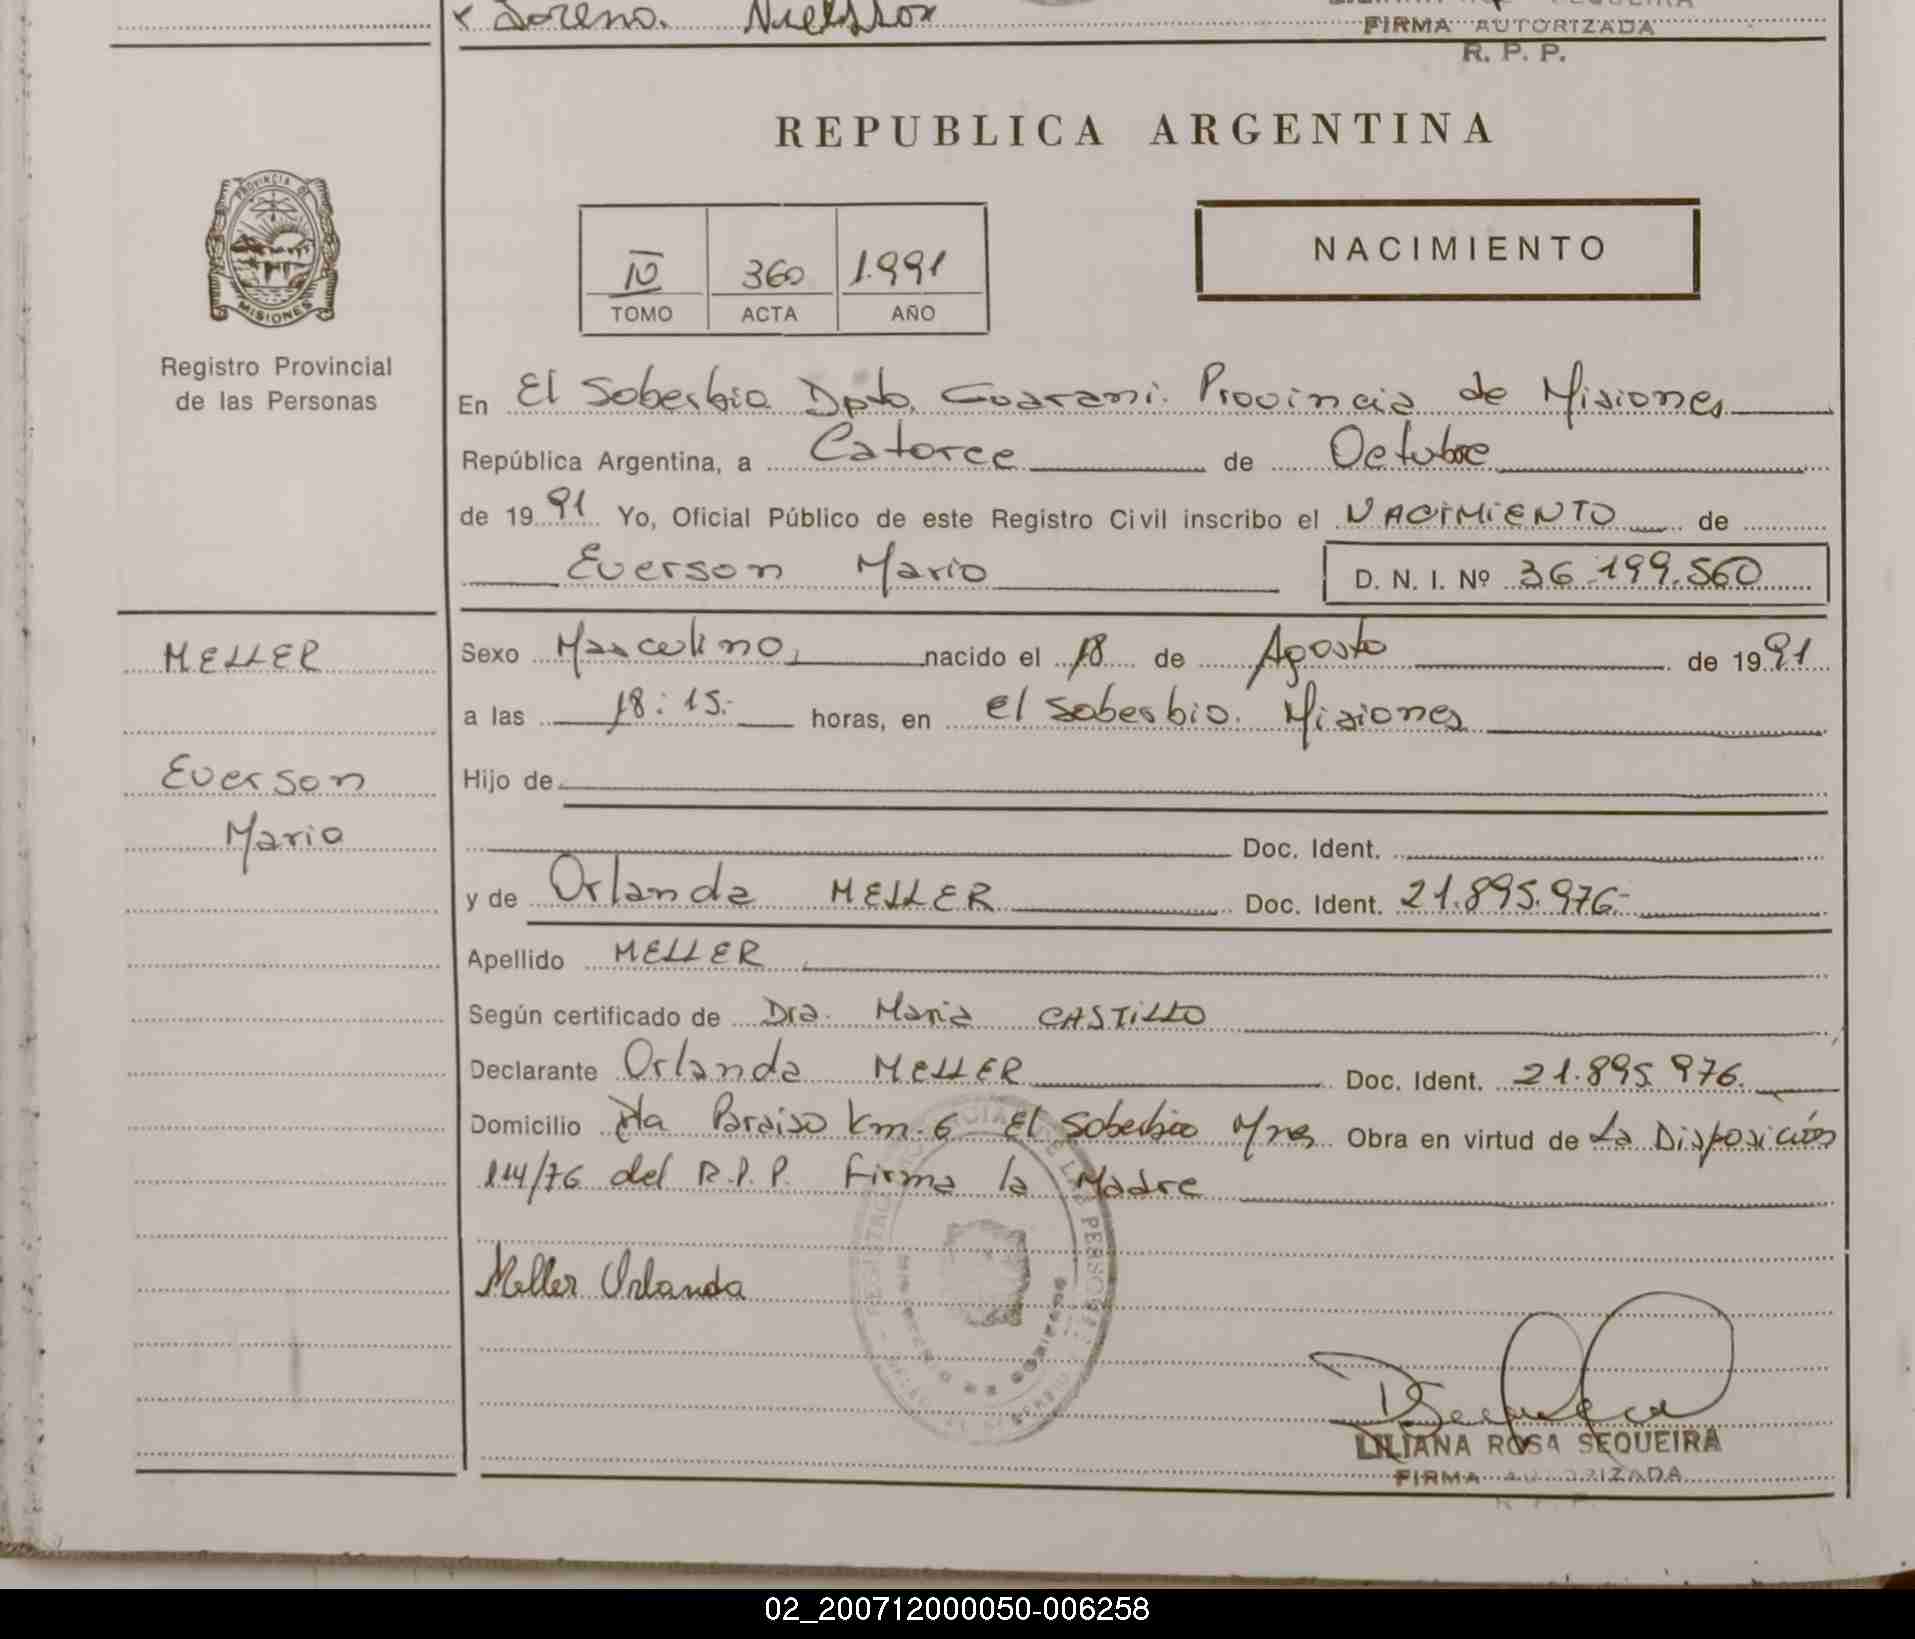 x Soreno. Nielsson
FIRMA AUTORIZADA
R. P. P.
REPUBLICA ARGENTINA
PROVINCIA DE
MISIONES
Registro Provincial
de las Personas
IV 360 1.991
TOMO ACTA AÑO
NACIMIENTO
En El Soberbio Dpto. Guarani. Provincia de Misiones
República Argentina, a Catorce de Octubre
de 1991 Yo, Oficial Público de este Registro Civil inscribo el NACIMIENTO de
Everson Mario D. N. I. Nº 36.199.560
MELLER
Everson
Mario
Sexo Masculino, nacido el 18 de Agosto de 1991
a las 18:15.- horas, en el Soberbio. Misiones
Hijo de
Doc. Ident.
y de Orlanda MELLER Doc. Ident. 21.895.976.-
Apellido MELLER
Según certificado de Dra. Maria CASTILLO
Declarante Orlanda MELLER Doc. Ident. 21.895.976.
Domicilio Paraiso Km. 6 El Soberbio Mnes Obra en virtud de La Disposición
114/76 del R.P.P. Firma la Madre
Meller Orlanda
LILIANA ROSA SEQUEIRA
FIRMA AUTORIZADA
R. P. P.
02_200712000050-006258